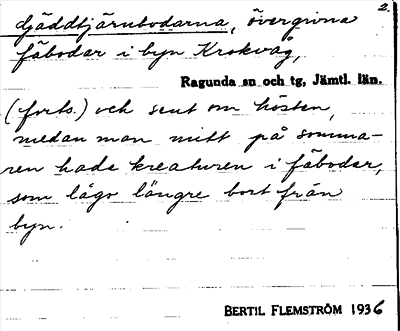 2.
Gäddtjärnbodarna, övergivna
fäbodar i byn Krokvåg,
Ragunda sn och tg, Jämtl. län.
(forts.) och sent om hösten,
medan man mitt på somma-
ren hade kreaturen i fäbodar,
som lågo längre bort från
byn.
BERTIL FLEMSTRÖM 1936